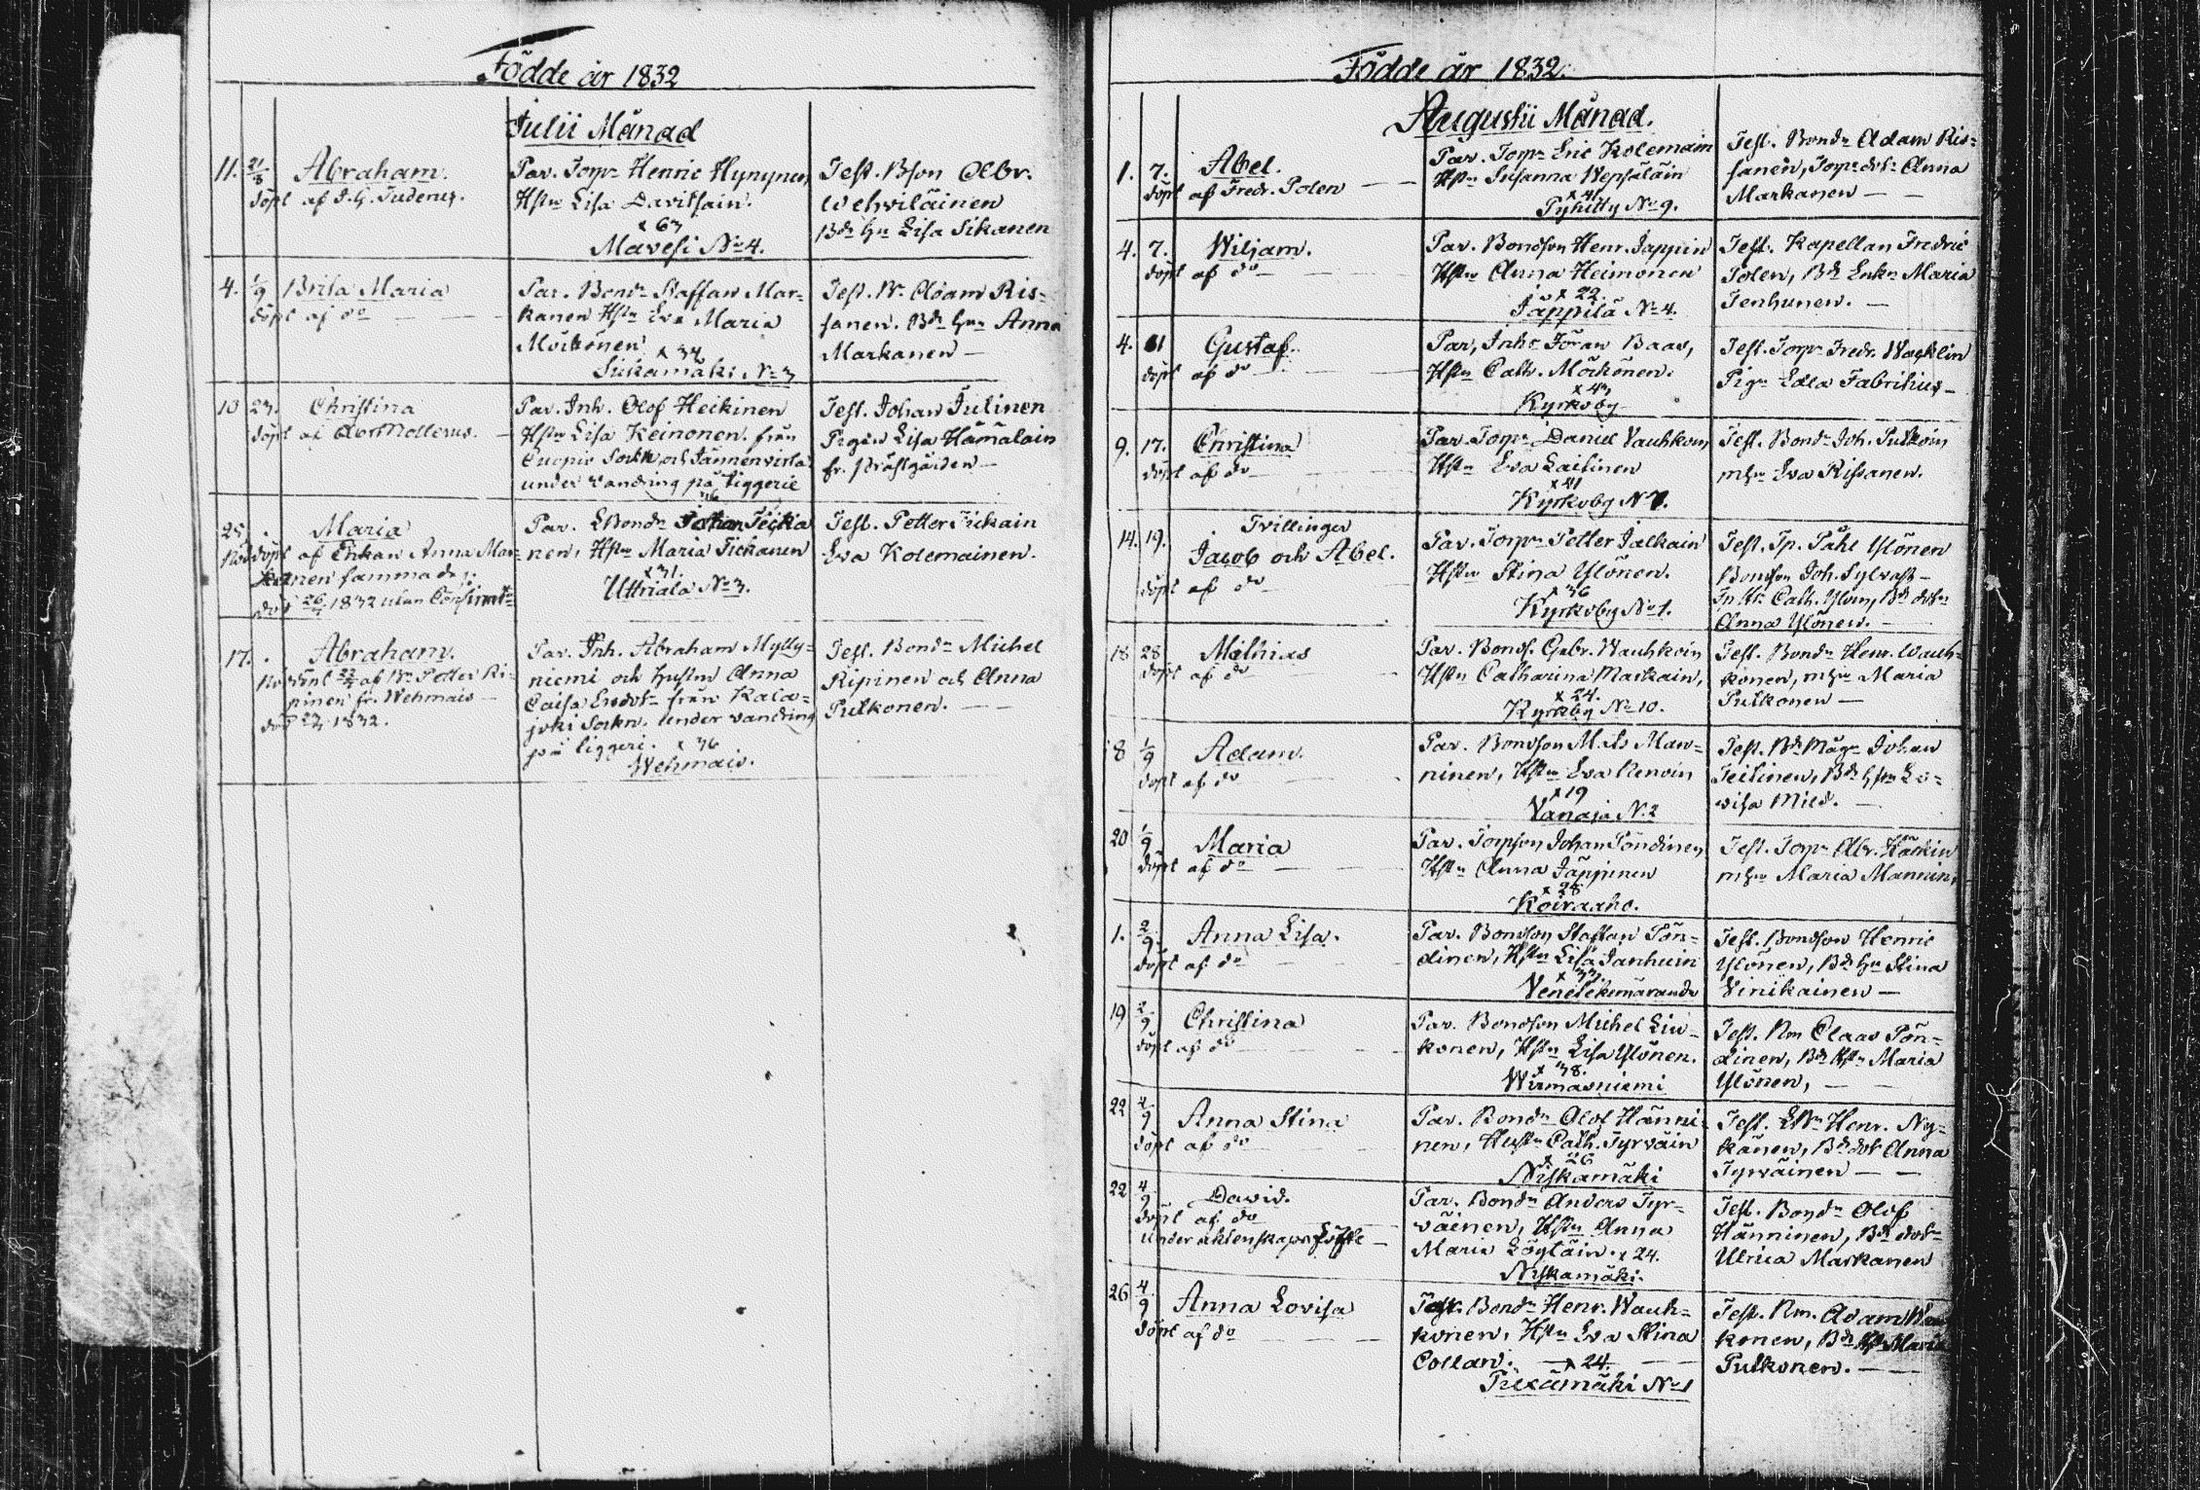 Födde år 1832
Julii Månad
11. 21/8 Abraham.
döpt af J. G. Judenus.
Par. Torpr Henric Hynynen,
Hstu Lisa Davitsain.
x 63
Mavesi No 4.
Test. Bson Abr.
Wehviläinen
Bde hu Lisa Sikanen
4. 1/9 Brita Maria
döpt af do
Par. Bond. Staffan Mar=
kanen Hstu Eva Maria
Mörkönen
x 34
Sukamäki No 3
Test. Adam Ris=
sanen. Bde hu Anna
Markanen —
10 23. Christina
döpt af
Par. Inh. Olof Heikinen
Hstu Lisa Keinonen från
Cuopio Sockn och Jännenvirta
under vandring på tiggerie
36
Test. Johan Jutinen
Pigan Lisa Hämäläin
fr. prästgården —
25. Maria
Nöddöpt af Enkan Anna Mar=
kanen samma dag
död 26/7 1832 utan Confirmt
Par. Bonde Johan Ticka
nen, Hstu Maria Tickanen
x 31.
Uttriala No 3.
Test. Petter Tickain
Eva Kolemainen.
17. Abraham.
Nöddöpt 22/7 af Petter Ri=
pinen fr. Wehmais —
död 1832.
Par. Inh. Abraham Mylly=
niemi och hustru Anna
Caisa från Kala=
joki Sockn. under vandring
på tiggeri. x 36
Wehmais.
Test. Bonde Michel
Ripinen och Anna
Putkonen. — —
Födde år 1832.
Augustii Månad.
1. 7. Abel.
döpt af Fredr. Polen — —
Par. Torpr Eric Kolemain
Hstu Susanna Wepsäläin
x 41
Pyhitty No 9.
Test. Bonde Adam Ris=
sanen, Torpr dotr Anna
Markanen — —
4. 7. Wiljam.
döpt af do
Par. Bondson Henr. Jäppin
Hstu Anna Heimonen
x 22.
Jäppilä No 4.
Test. Kapellan Fredric
Polen, Bde Enkn Maria
Tenhunen. —
4. 11 Gustaf.
döpt af do
Par, Inhr Jöran Baas,
Hstu Cath. Mörkönen.
x 43
Kyrkoby
Test. Torpr Fredr. Wacklin
Pign Edla Fabritius —
9. 17. Christina
döpt af do
Par Torpr Daniel Vauhkoin,
Hstu Eva Laitinen
x 41
Kyrkoby No 7.
Test. Bonde Joh. Putkoin
mhu Eva Rissanen.
14. 19. Tvillingar
Jacob och Abel.
döpt af do
Par. Torpr Petter Jalkain
Hstu Stina Ylönen.
x 36
Kyrkoby No 1.
Test. Tp. Påhl Ylönen
Bondson Joh. Sylvast —
Cath. Ylön, Bde dotr
Anna Ylönen. —
18 28 Mathias
döpt af do
Par. Bonds. Gabr. Wauhkoin
Hstu Catharina Markain,
x 24.
Kyrkby No 10.
Test. Bonde Henr. Wauh=
konen, mhu Maria
Putkonen —
8 1/9 Adam.
döpt af do
Par. Bondson Mats Man=
ninen, Hstu Eva
x 19
Vanaja No 2
Test. Bde Måg Johan
Teitinen, Bde hstu Lo=
visa Mild. —
20 1/9 Maria
döpt af do
Par. Torpson Johan Pöndinen,
Hstu Anna Jäppinen
x 28
Koiraaho.
Test. Torpr Abr. Härkin
mhu Maria Mannin,
1. 2/9 Anna Lisa.
döpt af do
Par. Bondson Staffan Pön=
dinen, Hstu Lisa Janhuin
x 33
Venetekemäranda
Test. Bondson Henric
Ylönen, Bde hu Stina
Vinikainen —
19 2/9 Christina
döpt af do
Par. Bondson Michel Liu=
konen, Hstu Lisa Ylönen.
x 38.
Wirmasniemi
Test. Nm Claas Pön=
dinen, Bde Hstu Maria
Ylönen, — —
22 4/9 Anna Stina
döpt af do
Par. Bonde Olof Hänni
nen, Hustu Cath. Tyrväin
x 26
Niskamäki
Test. Henr. Ny=
känen, Bde dotr Anna
Tyrväinen — —
22 4/9 David.
döpt af do
under äktenskaps löfte —
Par. Bonde Anders Tyr=
väinen, Hstu Anna
Maria Löytäin. x 24.
Niskamäki.
Test. Bonde Olof
Hänninen, Bde dotr
Ulrica Markanen
26 4/9 Anna Lovisa
döpt af do
Par. Bonde Henr. Wauh=
konen, Hstu Eva Stina
Collan. — x 24. —
No 1
Test. Nm. Adam Wau
konen, Bde Hst Maria
Putkonen. —